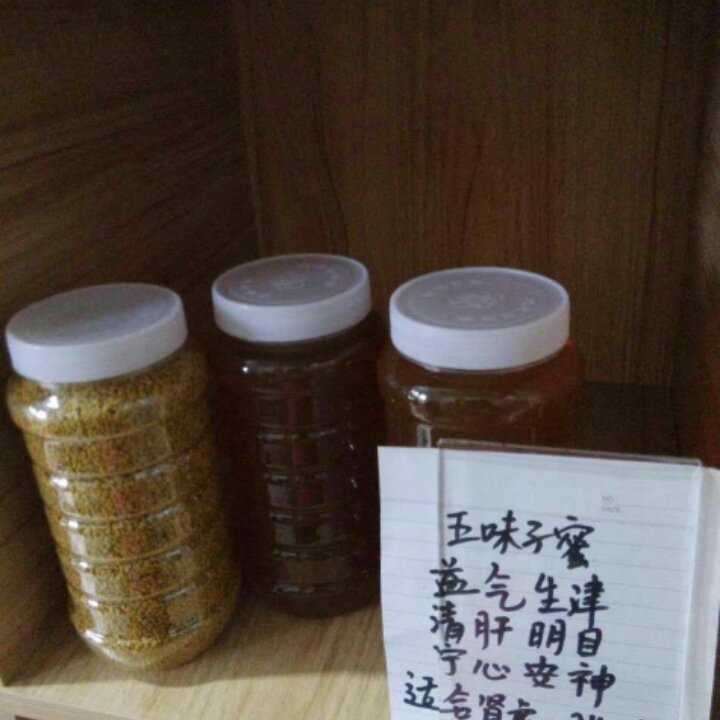 NO
DATE
五味子蜜
益气生津
清肝明目
宁心安神
适合肾